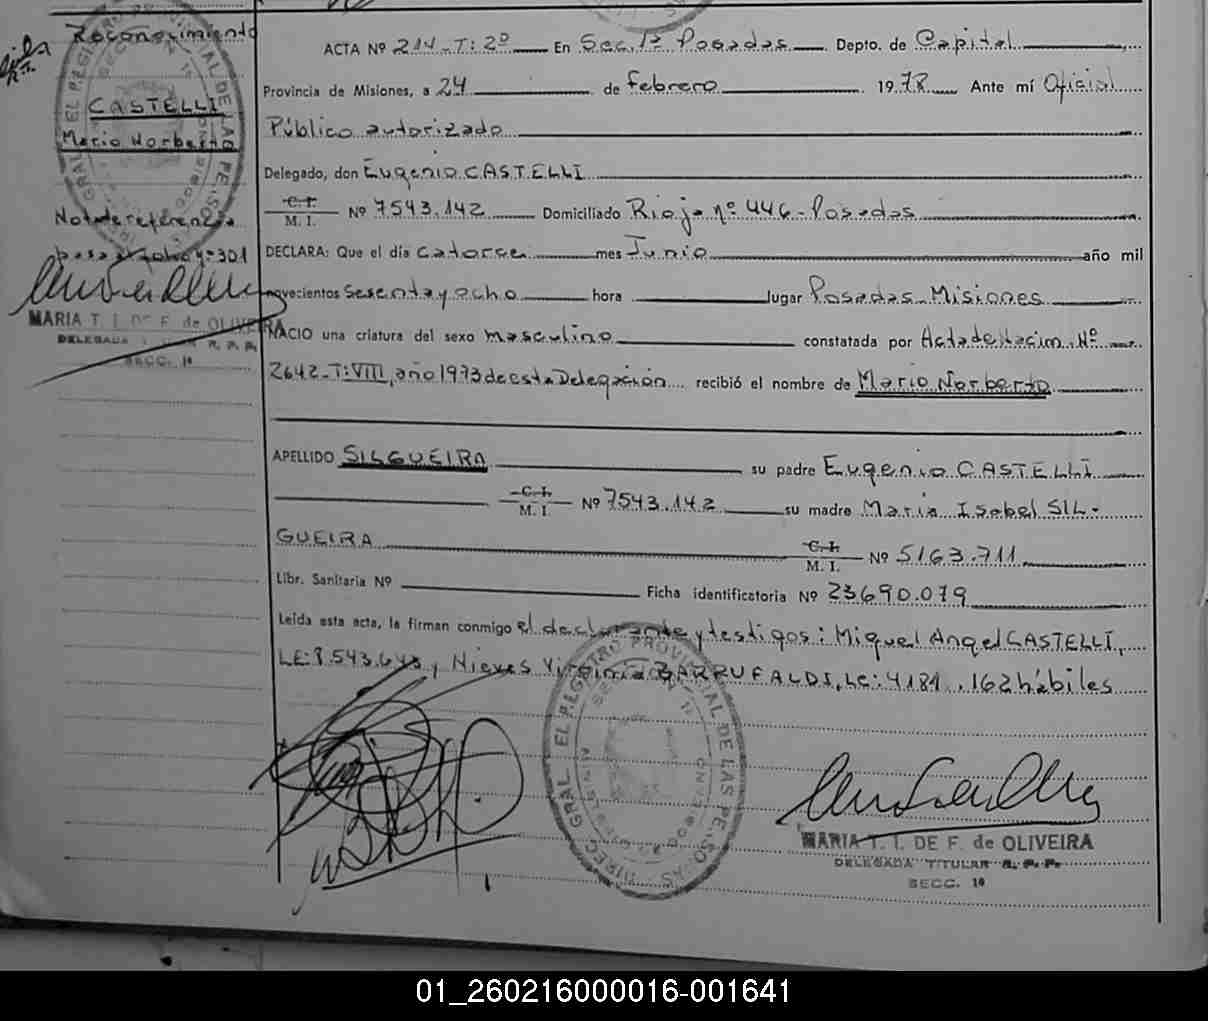 Reconocimiento
CASTELLI
Mario Norberto
Nota de referencia
pasa al folio nº 301
MARIA T. I. DE F. de OLIVEIRA
DELEGADA R. P. P.
SECC. 1ª
ACTA Nº 214-T: 2º En Sec. 1ª Posadas Depto. de Capital
Provincia de Misiones, a 24 de febrero 1978 Ante mí Oficial
Público autorizado
Delegado, don Eugenio CASTELLI
C. I.
M. I. Nº 7543.142 Domiciliado Rioja nº 446-Posadas
DECLARA: Que el día catorce mes Junio año mil
novecientos sesenta y ocho hora lugar Posadas-Misiones
NACIO una criatura del sexo masculino constatada por Acta de Nacim. Nº
2642-T: VIII, año 1973 de esta Delegación recibió el nombre de Mario Norberto
APELLIDO SILGUEIRA su padre Eugenio CASTELLI
C. I.
M. I. Nº 7543.142 su madre Maria Isabel SIL-
GUEIRA C. I.
M. I. Nº 5163.711
Libr. Sanitaria Nº Ficha identificatoria Nº 23690.079
Leída esta acta, la firman conmigo el declarante y testigos: Miguel Angel CASTELLI,
LE: 8.543.643 y Nieves Virginia BARRUFALDI, LC: 4181..162 hábiles
DIREC. GRAL. EL REGISTRO PROVINCIAL DE LAS PERSONAS
MARIA T. I. DE F. de OLIVEIRA
DELEGADA TITULAR R. P. P.
SECC. 1ª
01_260216000016-001641